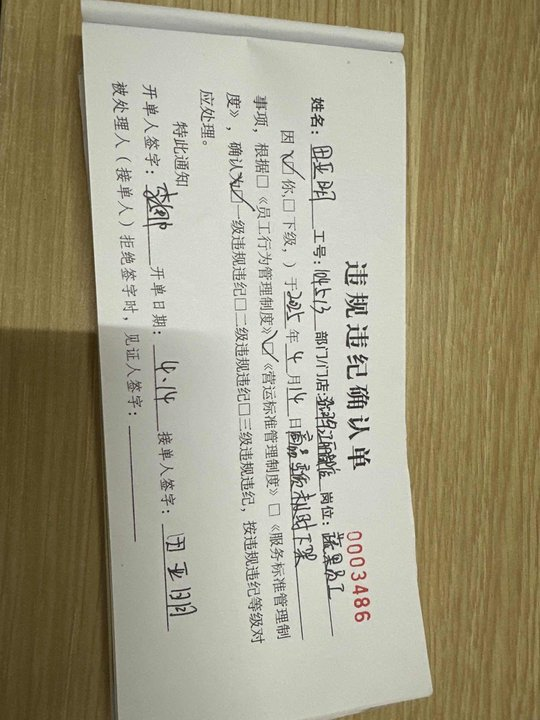 违规违纪确认单
0003486
姓名：田亚明 工号：104513 部门/门店： 岗位：蔬果员工
因（☑你，□下级，）于2025年4月14日商品变质未及时下架
事项，根据□《员工行为管理制度》☑《营运标准管理制度》□《服务标准管理制
度》，确认为☑一级违规违纪□二级违规违纪□三级违规违纪，按违规违纪等级对
应处理。
特此通知
开单人签字： 开单日期：4.14 接单人签字：田亚明
被处理人（接单人）拒绝签字时，见证人签字：